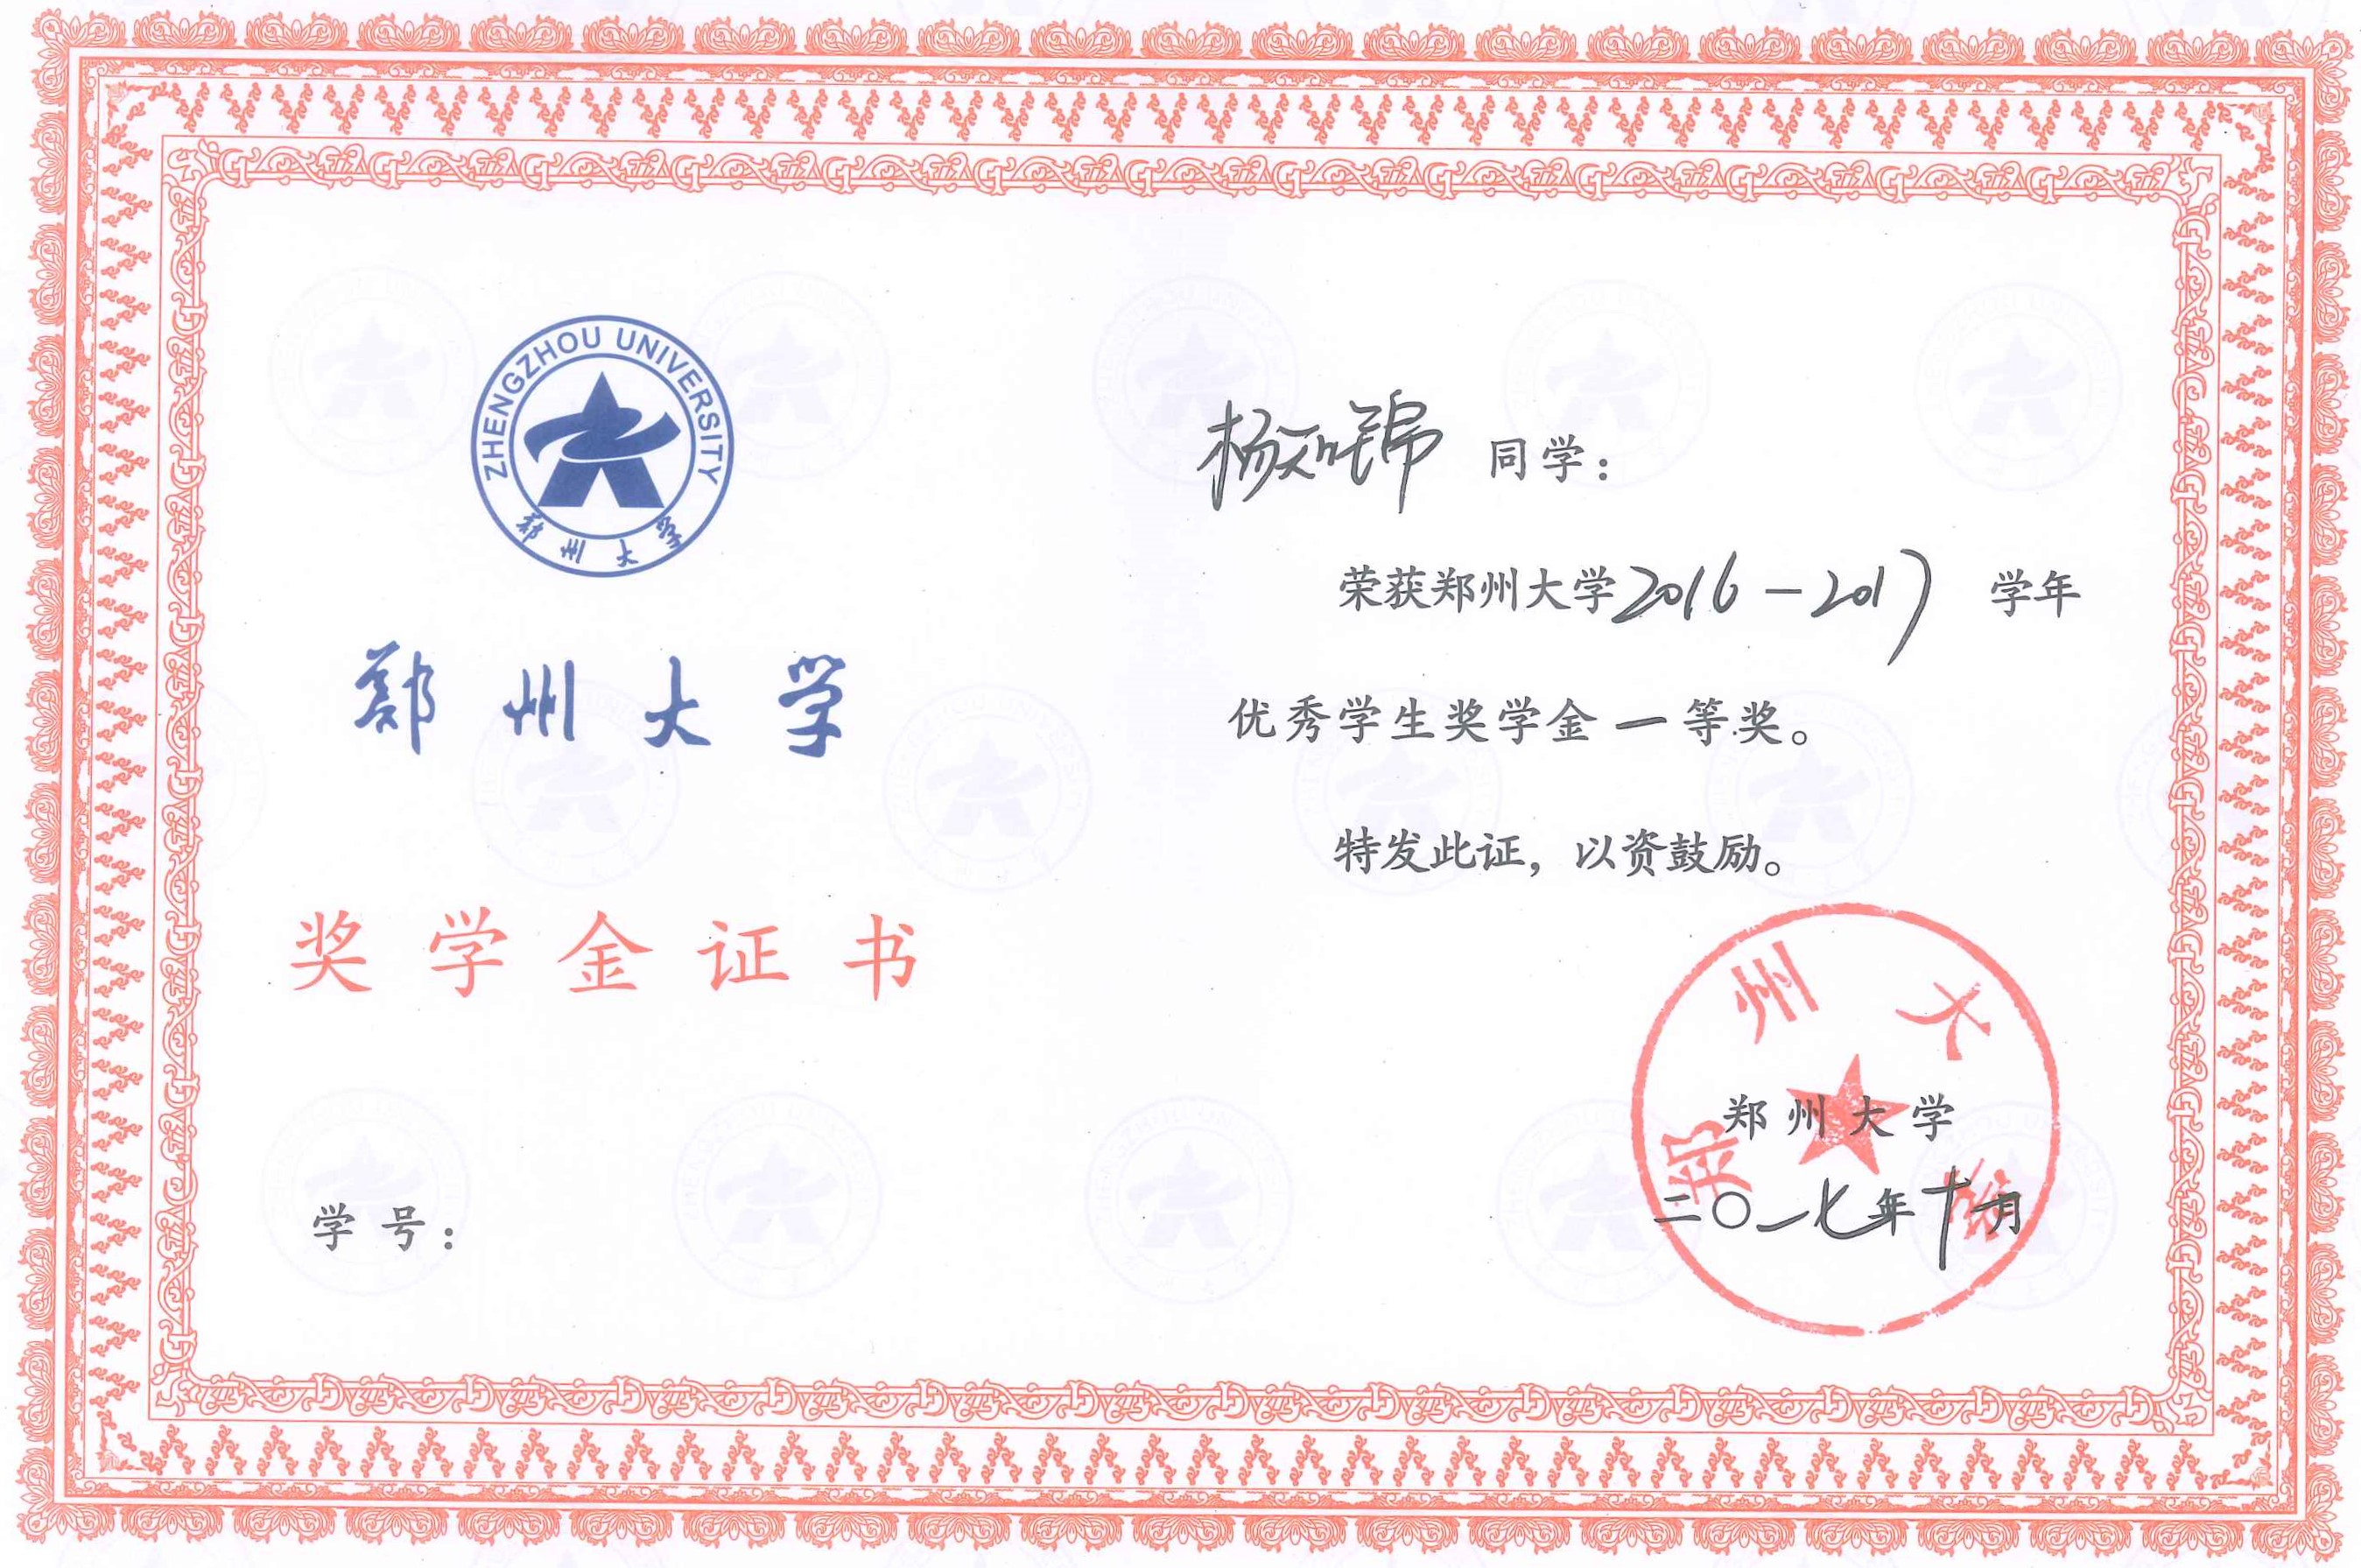 ZHENGZHOU UNIVERSITY
郑州大学
郑州大学
奖学金证书
学号：
杨天锦 同学：
荣获郑州大学2016-2017 学年
优秀学生奖学金一等奖。
特发此证，以资鼓励。
郑州大学
郑州大学
二〇一七年十月